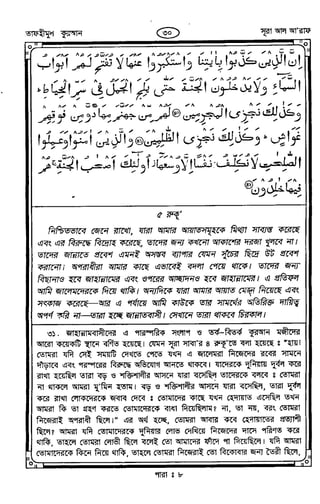 তাফহীমুল কুরআন
৩০
সূরা আল আ'রাফ
إِنَّ الَّذِينَ كَذَّبُوا بِآيٰتِنَا وَاسْتَكْبَرُوا عَنْهَا لَا تُفَتَّحُ لَهُمْ أَبْوَابُ
السَّمَاءِ وَلَا يَدْخُلُونَ الْجَنَّةَ حَتَّى يَلِجَ الْجَمَلُ فِي سَمِّ الْخِيَاطِ ۚ
وَكَذٰلِكَ نَجْزِي الْمُجْرِمِينَ۝ لَهُمْ مِنْ جَهَنَّمَ مِهَادٌ وَمِنْ فَوْقِهِمْ
غَوَاشٍ ۚ وَكَذٰلِكَ نَجْزِي الظّٰلِمِينَ۝ وَالَّذِينَ آمَنُوا وَعَمِلُوا
الصّٰلِحٰتِ لَا نُكَلِّفُ نَفْسًا إِلَّا وُسْعَهَا أُولٰئِكَ أَصْحٰبُ الْجَنَّةِ ۚ هُمْ
فِيهَا خٰلِدُونَ۝
৫ রুকূ'
নিশ্চিতভাবে জেনে রাখো, যারা আমার আয়াতসমূহকে মিথ্যা সাব্যস্ত করেছে
এবং এর বিরুদ্ধে বিদ্রোহ করেছে, তাদের জন্য কখনো আকাশের দরজা খুলবে না।
তাদের জান্নাতে প্রবেশ এমনই অসম্ভব ব্যাপার যেমন সূঁচের ছিদ্রে উট প্রবেশ
করানো। অপরাধীরা আমার কাছে এভাবেই বদলা পেয়ে থাকে। তাদের জন্য
বিছানাও হবে জাহান্নামের এবং ওপরের আচ্ছাদনও হবে জাহান্নামের। এ প্রতিফল
আমি জালেমদেরকে দিয়ে থাকি। অন্যদিকে যারা আমার আয়াত মেনে নিয়েছে এবং
সৎকাজ করেছে—আর এ পর্যায়ে আমি কাউকে তার সামর্থের অতিরিক্ত দায়িত্ব
অর্পণ করি না—তারা হচ্ছে জান্নাতবাসী। সেখানে তারা থাকবে চিরকাল।
৩১. জাহান্নামবাসীদের এ পারস্পরিক সংলাপ ও তর্ক-বিতর্ক কুরআন মজীদের
আরো কয়েকটি স্থানে বর্ণিত হয়েছে। যেমন সূরা সাবা'র ৪ রুকূ'তে বলা হয়েছে : "হায়!
তোমরা যদি সেই সময়টি দেখতে পেতে যখন এ জালেমরা নিজেদের রবের সামনে
দাঁড়াবে এবং পরস্পরের বিরুদ্ধে অভিযোগ আনতে থাকবে। যাদেরকে দুনিয়ায় দুর্বল করে
রাখা হয়েছিল তারা বড় ও শক্তিশালীর আসনে যারা বসেছিল তাদেরকে বলবে : তোমরা
না থাকলে আমরা মু'মিন হতাম। বড় ও শক্তিশালীর আসনে যারা বসেছিল, তারা দুর্বল
করে রাখা লোকদেরকে জবাব দেবে : তোমাদের কাছে যখন হেদায়াত এসেছিল তখন
আমরা কি তা গ্রহণ করতে তোমাদেরকে বাধা দিয়েছিলাম? না, তা নয়, বরং তোমরা
নিজেরাই অপরাধী ছিলে।" এর অর্থ হচ্ছে, তোমরা আবার কবে হেদায়াতের প্রত্যাশী
ছিলে? আমরা যদি তোমাদেরকে দুনিয়ার লোভ দেখিয়ে নিজেদের দাসে পরিণত করে
থাকি, তাহলে তোমরা লোভী ছিলে বলেই তো আমাদের ফাঁদে পা দিয়েছিলে। যদি আমরা
তোমাদেরকে কিনে নিয়ে থাকি, তাহলে তোমরা নিজেরাই তো বিকোবার জন্য তৈরী ছিলে,
পারা : ৮